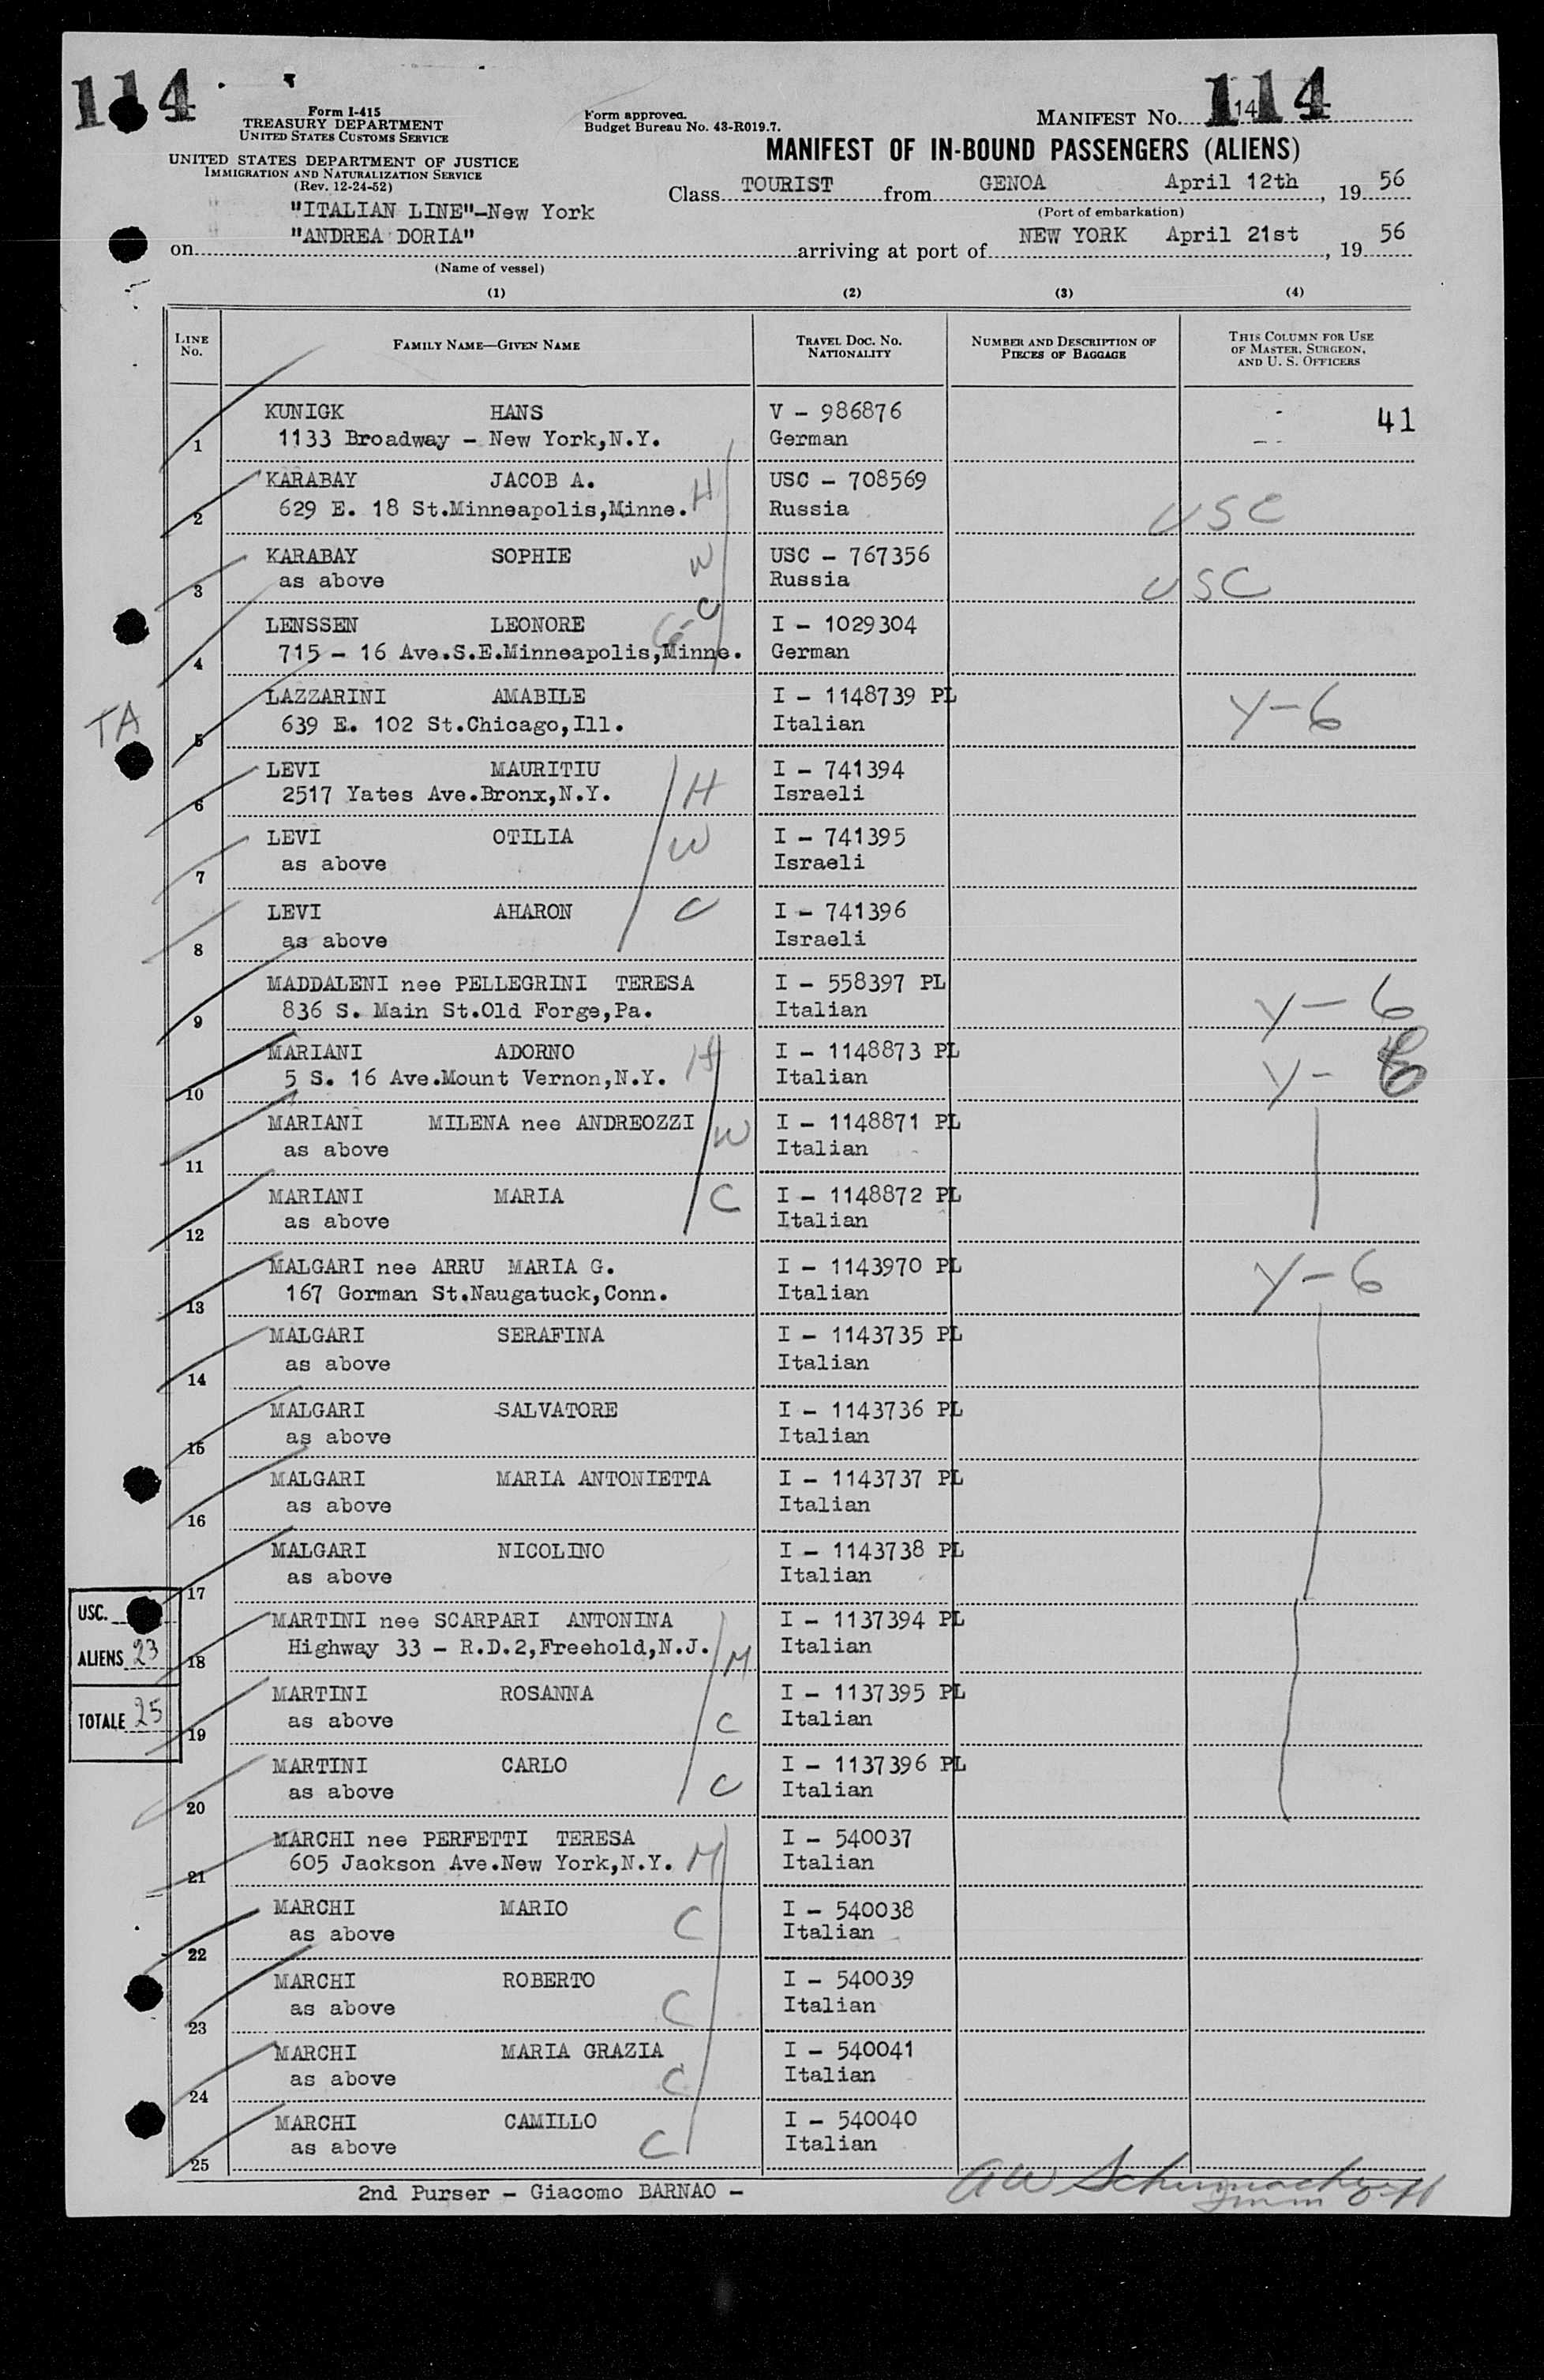 114
114
Form I-415
TREASURY DEPARTMENT
UNITED STATES CUSTOMS SERVICE
Form approved.
Budget Bureau No. 43-R019.7.
MANIFEST NO. 114
UNITED STATES DEPARTMENT OF JUSTICE
IMMIGRATION AND NATURALIZATION SERVICE
(Rev. 12-24-52)
MANIFEST OF IN-BOUND PASSENGERS (ALIENS)
Class TOURIST from GENOA April 12th, 19 56
(Port of embarkation)
"ITALIAN LINE"-New York
"ANDREA DORIA"
on arriving at port of NEW YORK April 21st, 19 56
(Name of vessel)
(1) (2) (3) (4)
LINE No. FAMILY NAME—GIVEN NAME TRAVEL DOC. NO. NATIONALITY NUMBER AND DESCRIPTION OF PIECES OF BAGGAGE THIS COLUMN FOR USE OF MASTER, SURGEON, AND U. S. OFFICERS
KUNIGK HANS V - 986876 41
1 1133 Broadway - New York,N.Y. German
KARABAY JACOB A. H USC - 708569 USC
2 629 E. 18 St.Minneapolis,Minne. Russia
KARABAY SOPHIE W USC - 767356 USC
3 as above Russia
LENSSEN LEONORE C I - 1029304
4 715 - 16 Ave.S.E.Minneapolis,Minne. German
LAZZARINI AMABILE I - 1148739 PL Y-6
TA 5 639 E. 102 St.Chicago,Ill. Italian
LEVI MAURITIU H I - 741394
6 2517 Yates Ave.Bronx,N.Y. Israeli
LEVI OTILIA W I - 741395
7 as above Israeli
LEVI AHARON C I - 741396
8 as above Israeli
MADDALENI nee PELLEGRINI TERESA I - 558397 PL Y-6
9 836 S. Main St.Old Forge,Pa. Italian
MARIANI ADORNO H I - 1148873 PL Y-6
10 5 S. 16 Ave.Mount Vernon,N.Y. Italian
MARIANI MILENA nee ANDREOZZI W I - 1148871 PL
11 as above Italian
MARIANI MARIA C I - 1148872 PL
12 as above Italian
MALGARI nee ARRU MARIA G. I - 1143970 PL Y-6
13 167 Gorman St.Naugatuck,Conn. Italian
MALGARI SERAFINA I - 1143735 PL
14 as above Italian
MALGARI SALVATORE I - 1143736 PL
15 as above Italian
MALGARI MARIA ANTONIETTA I - 1143737 PL
16 as above Italian
MALGARI NICOLINO I - 1143738 PL
17 as above Italian
USC.
ALIENS 23
TOTALE 25
MARTINI nee SCARPARI ANTONINA M I - 1137394 PL
18 Highway 33 - R.D.2,Freehold,N.J. Italian
MARTINI ROSANNA C I - 1137395 PL
19 as above Italian
MARTINI CARLO C I - 1137396 PL
20 as above Italian
MARCHI nee PERFETTI TERESA M I - 540037
21 605 Jackson Ave.New York,N.Y. Italian
MARCHI MARIO C I - 540038
22 as above Italian
MARCHI ROBERTO C I - 540039
23 as above Italian
MARCHI MARIA GRAZIA C I - 540041
24 as above Italian
MARCHI CAMILLO C I - 540040
25 as above Italian
2nd Purser - Giacomo BARNAO -
AW Schumacher